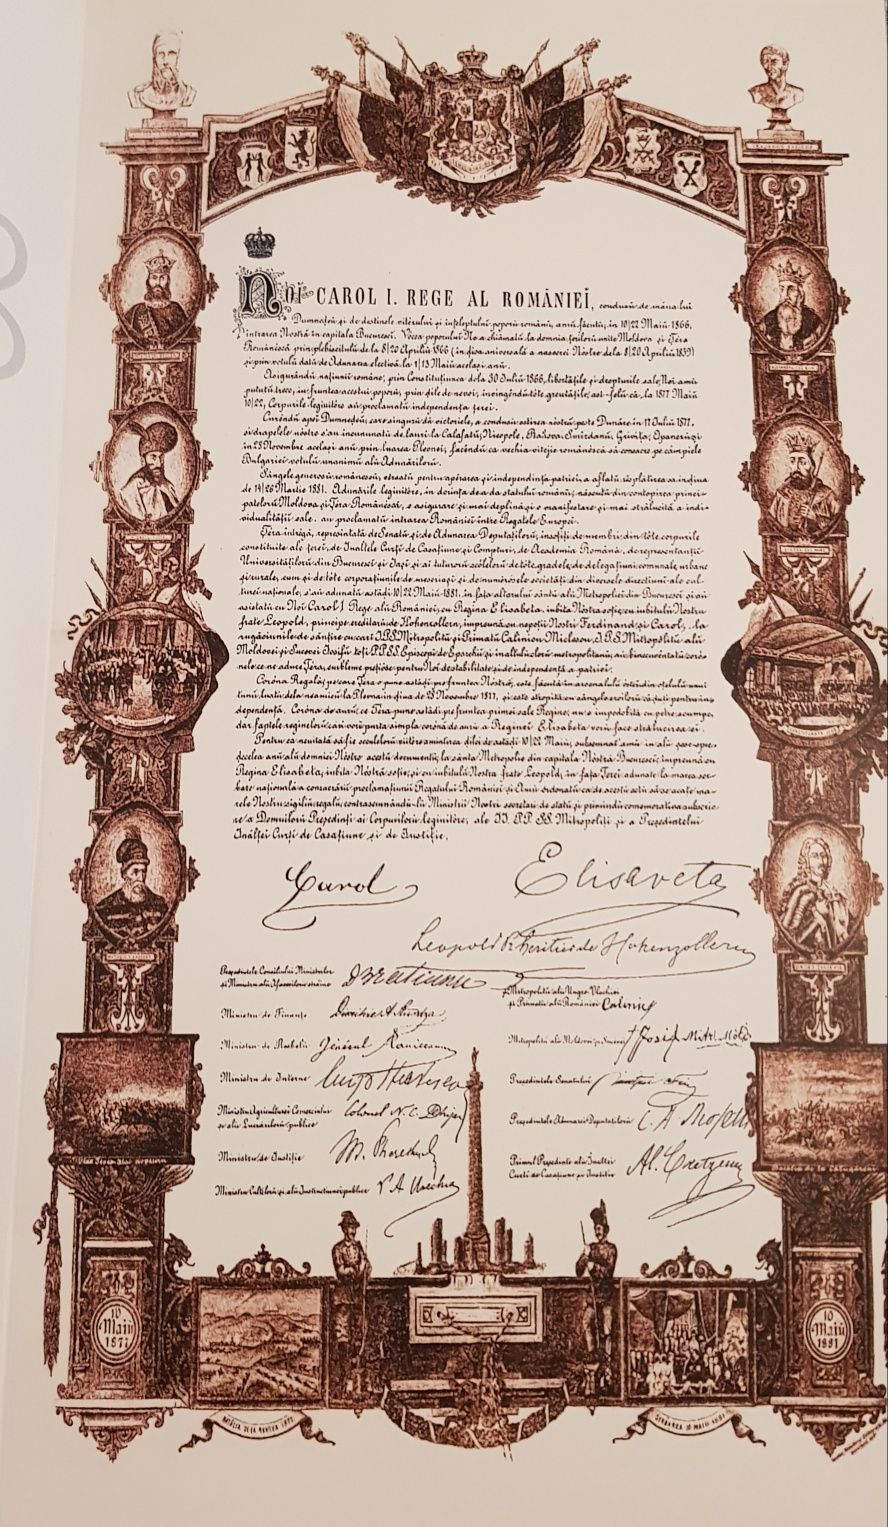 Noi CAROL I. REGE AL ROMÂNIEĬ, condusŭ de mâna lui
Dumnezeŭ și de destinele vitézului și înțeleptului poporŭ românŭ, amŭ făcutŭ, în 10/22 Maiŭ 1866,
intrarea Nostră în capitala Bucurescĭ. Vocea poporuluĭ Ne-a chiămatŭ la domnia țerilorŭ unite Moldova și Țéra
Românéscă prin plebiscitulŭ de la 8/20 Aprilŭ 1866 (în dioa aniversală a nascerei Nóstre de la 8/20 Aprilŭ 1839)
și prin votulŭ datŭ de Adunarea electivă la 1/13 Maiŭ acelașĭ anŭ.
Asigurândŭ națiuniĭ române, prin Constituțiunea de la 30 Iuliŭ 1866, libertățile și drepturile sale, Noi amŭ
pututŭ trece, în fruntea acestuĭ poporŭ, prin dile de nevoĭ, învingêndŭ tóte greutățile, ast-felŭ că, la 1877 Maiŭ
10/22, Corpurile legiuitóre aŭ proclamatŭ independența țereĭ.
Curêndŭ apoi Dumnezeŭ, care singurŭ dă victoriele, a condusŭ óstirea nóstră peste Dunăre în 17 Iuliŭ 1877,
și drapelele nóstre s'aŭ încununatŭ de lauri la Calafatŭ, Nicopole, Rahova, Smîrdanŭ, Grivița, Opanezŭ și
în 28 Noembre acelașĭ anŭ prin luarea Plevneĭ, făcândŭ ca vechia vitejie românéscă să consacre pe câmpiele
Bulgariei votulŭ unanimŭ alŭ Adunărilorŭ.
Sângele generosŭ românescŭ, vărsatŭ pentru apărarea și independința patrieĭ, a aflatŭ résplătirea sa în diua
de 14/26 Martie 1881. Adunările legiuitóre, în dorința de a da statuluĭ românŭ, născutŭ din contopirea princi-
patelorŭ Moldova și Țéra Românéscă, o asigurare și mai deplină și o manifestare și mai strălucită a indi-
vidualitățiĭ sale, aŭ proclamatŭ intrarea României între Regatele Europeĭ.
Țéra întrégă, represintată de Senatŭ și de Adunarea Deputațilorŭ, însoțițĭ de membri din tóte corpurile
constituite ale țereĭ, de Înaltele Curțĭ de Casațiune și Compturĭ, de Academia Română, de representanțiĭ
Universitățilorŭ din Bucurescĭ și Iașĭ și ai tuturorŭ scólelorŭ de tóte gradele, de delegațiunĭ comunale, urbane
și rurale, cum și de tóte corporațiunile de meseriașĭ și de numerósele societățĭ din diversele direcțiunĭ ale cul-
tureĭ naționale, s'aŭ adunatŭ astădĭ 10/22 Maiŭ 1881, în fața altaruluĭ sântŭ alŭ Metropolieĭ din Bucurescĭ și aŭ
asistatŭ cu Noi Carol I Rege alŭ României, cu Regina Elisabeta, iubita Nóstră soție, cu iubitulŭ Nostru
frate Leopold, principe ereditarŭ de Hohenzollern, împreună cu nepoțiĭ Nostri Ferdinand și Carol, la
rugăciunile de sânțire cu cari I.P.S. Mitropolitŭ și Primatŭ Calinicŭ Miclescu, I.P.S. Mitropolitŭ alŭ
Moldovei și Suceveĭ Iosifŭ, toțĭ P.P.S.S. Episcopĭ de Eparchiĭ și înaltulŭ clerŭ metropolitanŭ, aŭ bine-cuvântatŭ coró-
nele ce ne aduce Țéra, embleme prețióse pentru Noi de stabilitate și de independență a patrieĭ.
Coróna Regală, pe care Țéra o pune astădĭ pe fruntea Nóstră, este făcută în arsenalulŭ ósteĭ din oțelulŭ unuĭ
tunŭ, luatŭ de la neamicĭ la Plevna în diua de 28 Noembre 1877, și este stropită cu sângele eroilorŭ căduțĭ pentru in-
dependență. Coróna de aurŭ, ce Țéra pune astădĭ pe fruntea primeĭ sale Regine, nu e împodobită cu petre scumpe,
dar faptele reginelorŭ, cari vorŭ purta simpla coróna de aurŭ a Regineĭ Elisabeta, vorŭ face strălucirea eĭ.
Pentru ca neuitată să fie seculilorŭ viitóre amintirea dileĭ de astădĭ 10/22 Maiŭ, subsemnat'amŭ în alŭ șese-spre-
decelea anŭ alŭ domnieĭ Nóstre acestŭ documentŭ, la sânta Metropolie din capitala Nóstră Bucurescĭ, împreună cu
Regina Elisabeta, iubita Nóstră soție, și cu iubitulŭ Nostru frate Leopold, în fața Țereĭ adunate la marea ser-
bare națională a consacrăriĭ proclamațiuniĭ Regatuluĭ României și Amŭ ordonatŭ ca de acestŭ actŭ să se acațe ma-
rele Nostru sigiliŭ regalŭ, contrasemnându-lŭ Miniștriĭ Nostri secretarĭ de statŭ și priimindŭ comemorativa subscrie-
re a Domnilorŭ Președințĭ aĭ Corpurilorŭ legiuitóre, ale II. PP. SS. Mitropolițĭ și a Președinteluĭ
Înalteĭ Curțĭ de Casațiune și de Justiție.
Carol Elisaveta
Leopold Pr. heritier de Hohenzollern
Președintele Consiliuluĭ Miniștrilor
și Ministru alŭ Afacerilorŭ străine I. C. Brătianu
Metropolitŭ alŭ Ungro-Vlachieĭ
și Primatŭ alŭ României Calinic
Ministru de Finanțe
Ministru de Resbelŭ General Slăniceanu
Metropolitŭ alŭ Moldoveĭ și Suceveĭ † Iosif Mitr. Mold.
Ministru de Interne
Președintele Senatuluĭ
Ministru Agriculturei Comerciuluĭ
și alŭ Lucrărilorŭ publice Colonel N. C. Dabija
Președintele Adunării Deputațilorŭ C. A. Rosetti
Ministru de Justiție M. Pherekyde
Primul Președinte alŭ Înaltei
Curți de Casațiune și Justiție Al. Crețescu
Ministru Cultelorŭ și alŭ Instrucțiuneĭ publice V. A. Urechia
Bătălia de la Călugăreni
10
Maiŭ
1877
10
Maiŭ
1881
BATALIA DE LA PLEVNA 1877
SERBAREA 10 MAIU 1881